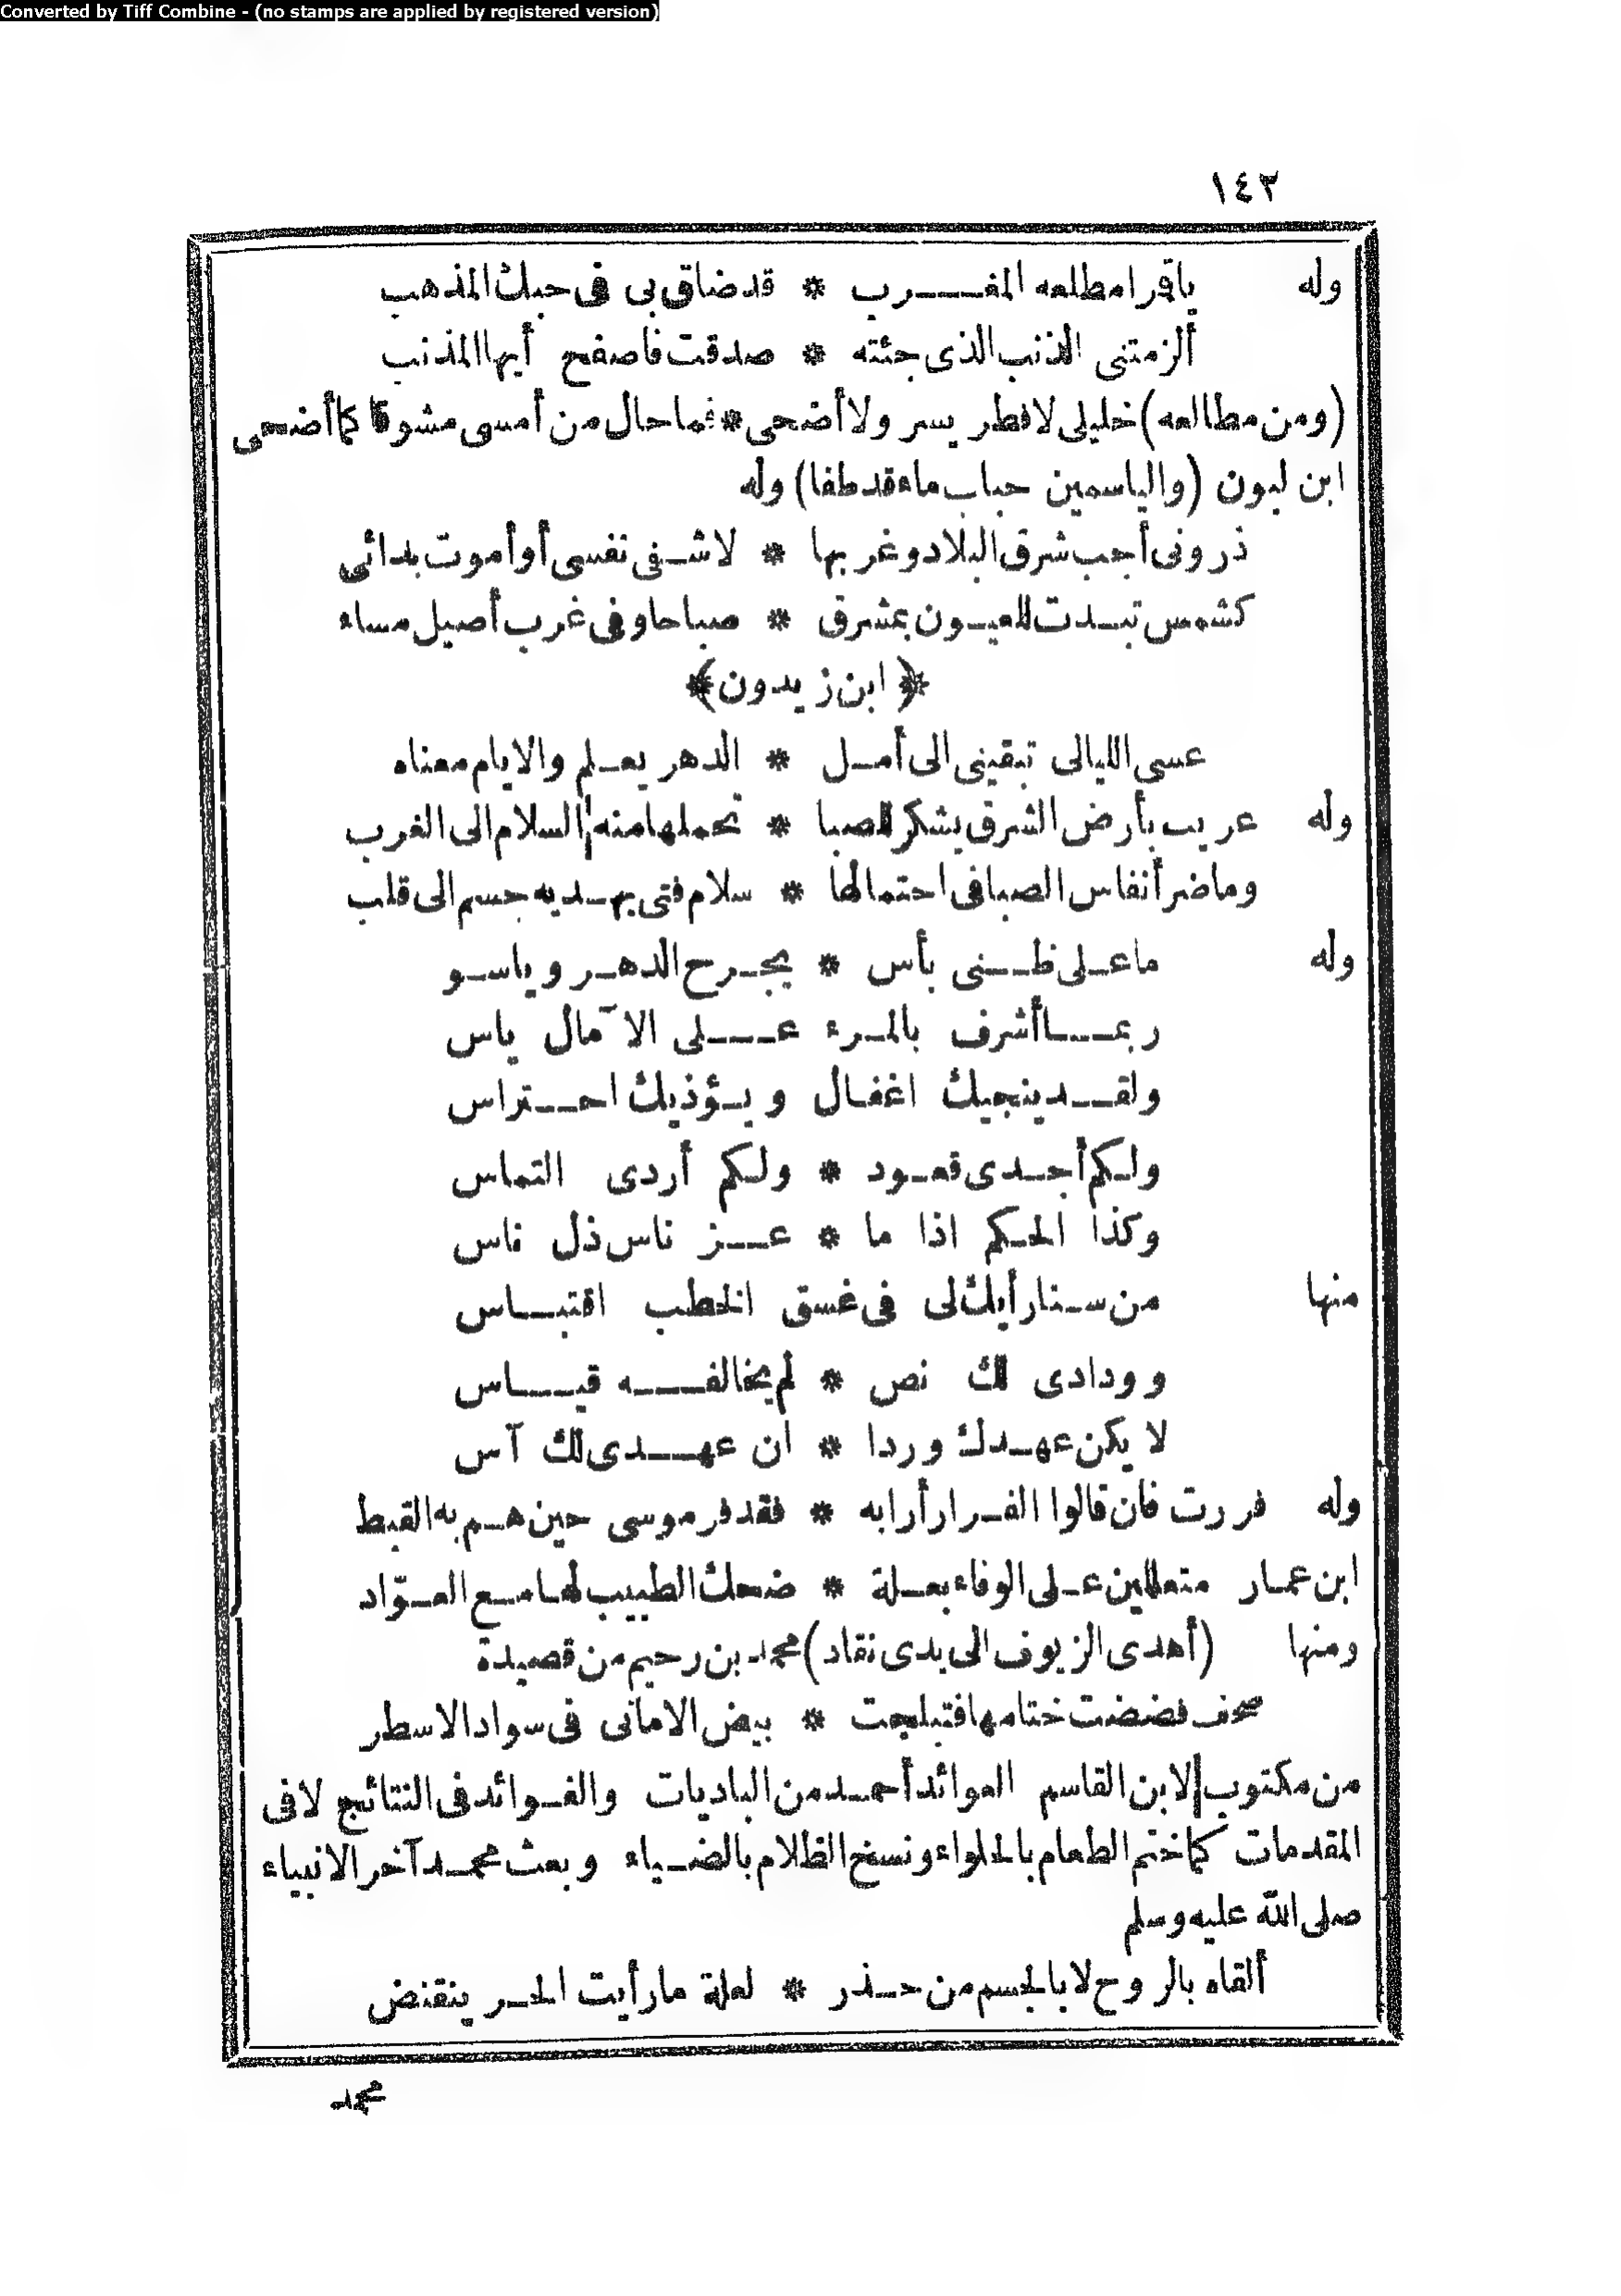 Converted by Tiff Combine - (no stamps are applied by registered version)
١٤٢
وله ياقمرا مطلعه المغرب * قد ضاق بى فى حبك المذهب
ألزمتنى الذنب الذى جئته * صدقت فاصفح أيها المذنب
(ومن مطالعه) خليلى لافطر يسر ولا أضحى * فما حال من أمسى مشوقا كما أضحى
ابن لبون (والياسمين حباب ماء قد طفا) وله
ذرونى أجب شرق البلاد وغربها * لاشفى نفسى أو أموت بدائى
كشمس تبدت للعيون بمشرق * صباحا وفى غرب أصيل مساء
﴿ ابن زيدون ﴾
عسى الليالى تبقينى الى أمل * الدهر يعلم والايام معناه
وله عريب بأرض الشرق يشكر للصبا * تحملها منه السلام الى الغرب
وما ضر أنفاس الصبا فى احتمالها * سلام فتى يهديه جسم الى قلب
وله ما على ظنى بأس * يجرح الدهر وياسو
ربما أشرف بالمرء على الآمال ياس
ولقد ينجيك اغفال ويؤذيك احتراس
ولكم أجدى قعود * ولكم أردى التماس
وكذا الحكم اذا ما * عز ناس ذل ناس
منها من سنا رأيك لى فى غسق الخطب اقتباس
وودادى لك نص * لم يخالفه قياس
لا يكن عهدك وردا * ان عهدى لك آس
وله فررت فان قالوا الفرار أرابه * فقد فر موسى حين هم به القبط
ابن عمار متعللين على الوفاء بعلة * ضحك الطبيب لها مع العوّاد
ومنها (أهدى الزيوف الى يدى نقاد) محمد بن رحيم من قصيدة
صحف فضضت ختامها فتبلجت * بيض الامانى فى سواد الاسطر
من مكتوب لابن القاسم العوائد أحمد من الباديات والفوائد فى النتائج لا فى
المقدمات كما ختم الطعام بالحلواء ونسخ الظلام بالضياء وبعث محمد آخر الانبياء
صلى الله عليه وسلم
ألقاه بالروح لا بالجسم من حذر * لعلة ما رأيت الحر ينقنض
محمد